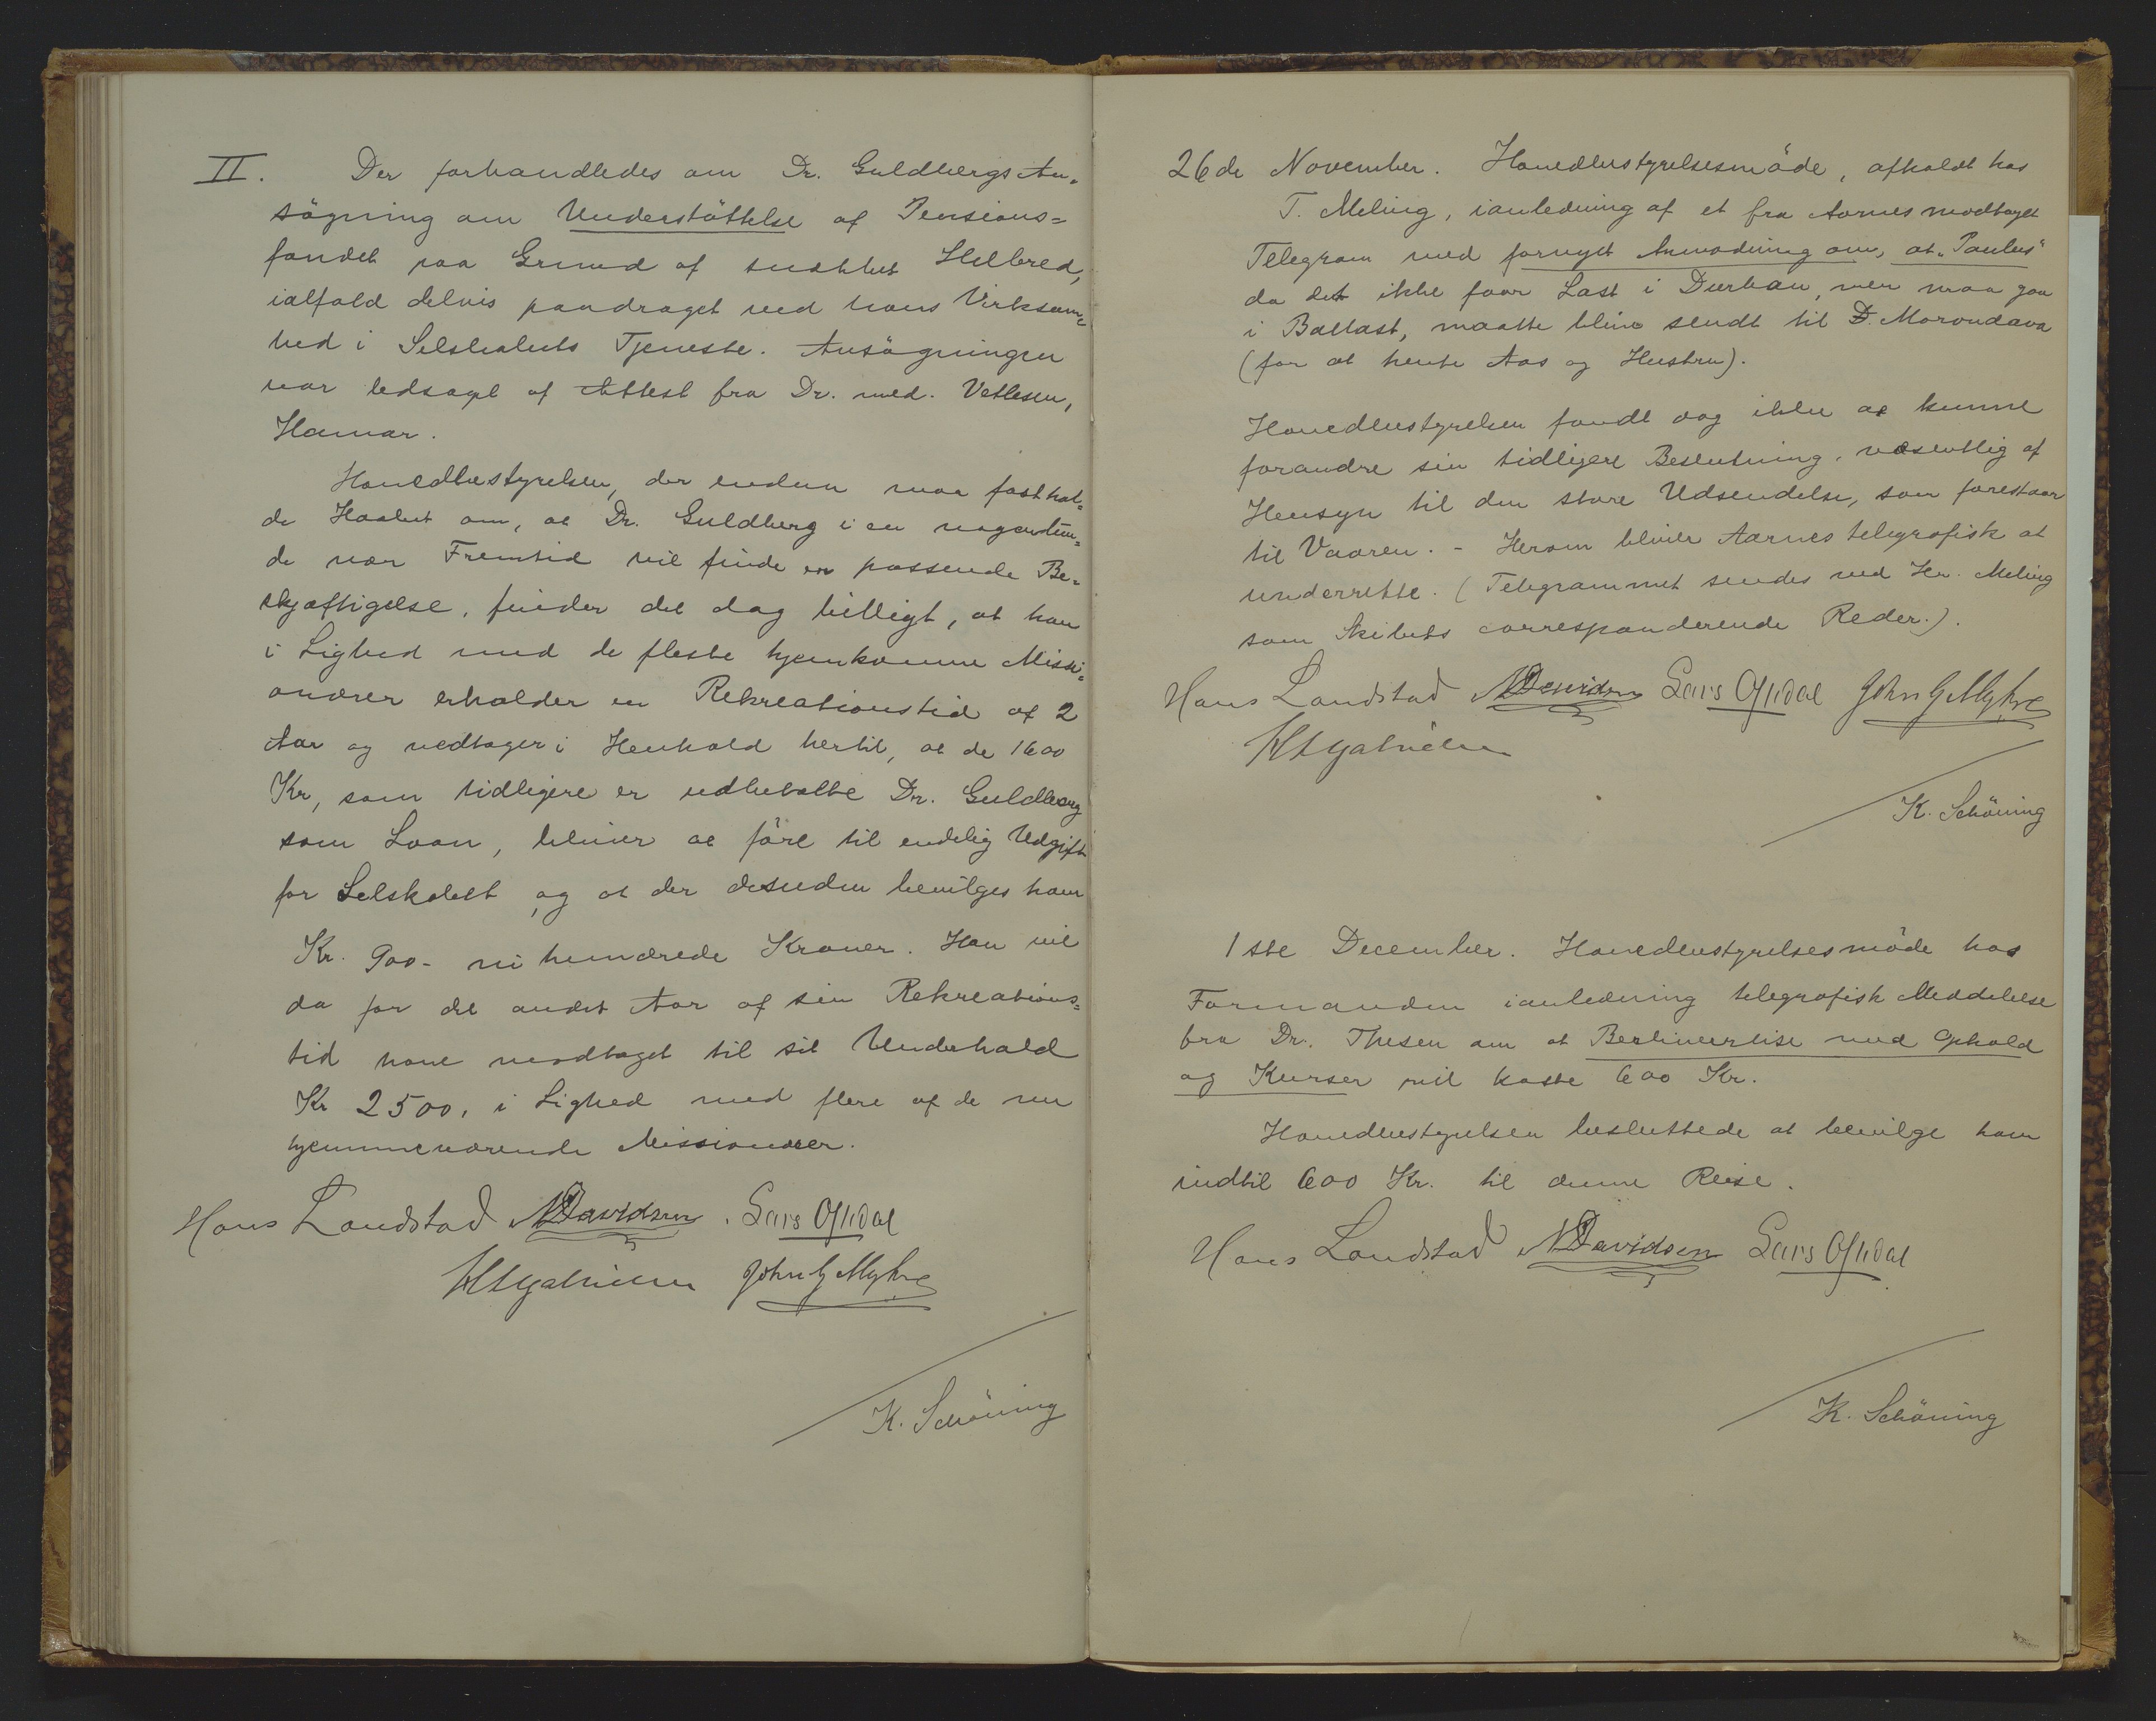 II. Der forhandledes om Dr. Guldbergs An-
søgning om Understöttelse af Pensions=
fondet paa Grund af svækket Helbred,
ialfald delvis paadraget ved hans Virksom=
hed i Selskabets Tjeneste. Ansøgningen
var ledsaget af Attest fra Dr. med. Vetlesen,
Hamar.
Hovedbestyrelsen, der endnu maa fasthol=
de Haabet om, at Dr. Guldberg i en nogenlun=
de nær Fremtid vil finde en passende Be=
skjæftigelse, finder det dog billigt, at han
i Lighed med de fleste hjemkomne Missi=
onærer erholder en Rekreationstid af 2
Aar og vedtager i Henhold hertil, at de 1600
Kr, som tidligere er udbetalte Dr. Guldberg
som Laan, bliver at føre til endelig Udgift
for Selskabet, og at der desuden bevilges ham
Kr. 900- ni hundrede Kroner. Han vil
da for det andet Aar af sin Rekreations=
tid have modtaget til sit Underhold
Kr 2500, i Lighed med flere af de nu
hjemmeværende Missionærer.
Hans Landstad NDavidsen. Lars Oftedal
John G Myhre
K. Schöning
26de November. Hovedbestyrelsesmöde, afholdt hos
T. Meling, ianledning af et fra Aarnes modtaget
Telegram med fornyet Anmodning om, at "Paulus"
da det ikke faar Last i Durban, men maa gaa
i Ballast, maatte blive sendt til Morondava
(for at hente Aas og Hustru).
Hovedbestyrelsen fandt dog ikke at kunne
forandre sin tidligere Beslutning, væsentlig af
Hensyn til den store Udsendelse, som forestaar
til Vaaren. - Herom bliver Aarnes telegrafisk at
underrette. (Telegrammet sendes ved Hr. Meling
som Skibets corresponderende Reder.).
Hans Landstad NDavidsen Lars Oftedal John G Myhre
K. Schöning
1ste December. Hovedbestyrelsesmöde hos
Formanden ianledning telegrafisk Meddelelse
fra Dr. Thesen om at Berlinerreise med Ophold
og Kurser vil koste 600 Kr.
Hovedbestyrelsen besluttede at bevilge ham
indtil 600 Kr. til denne Reise.
Hans Landstad NDavidsen Lars Oftedal
K. Schöning